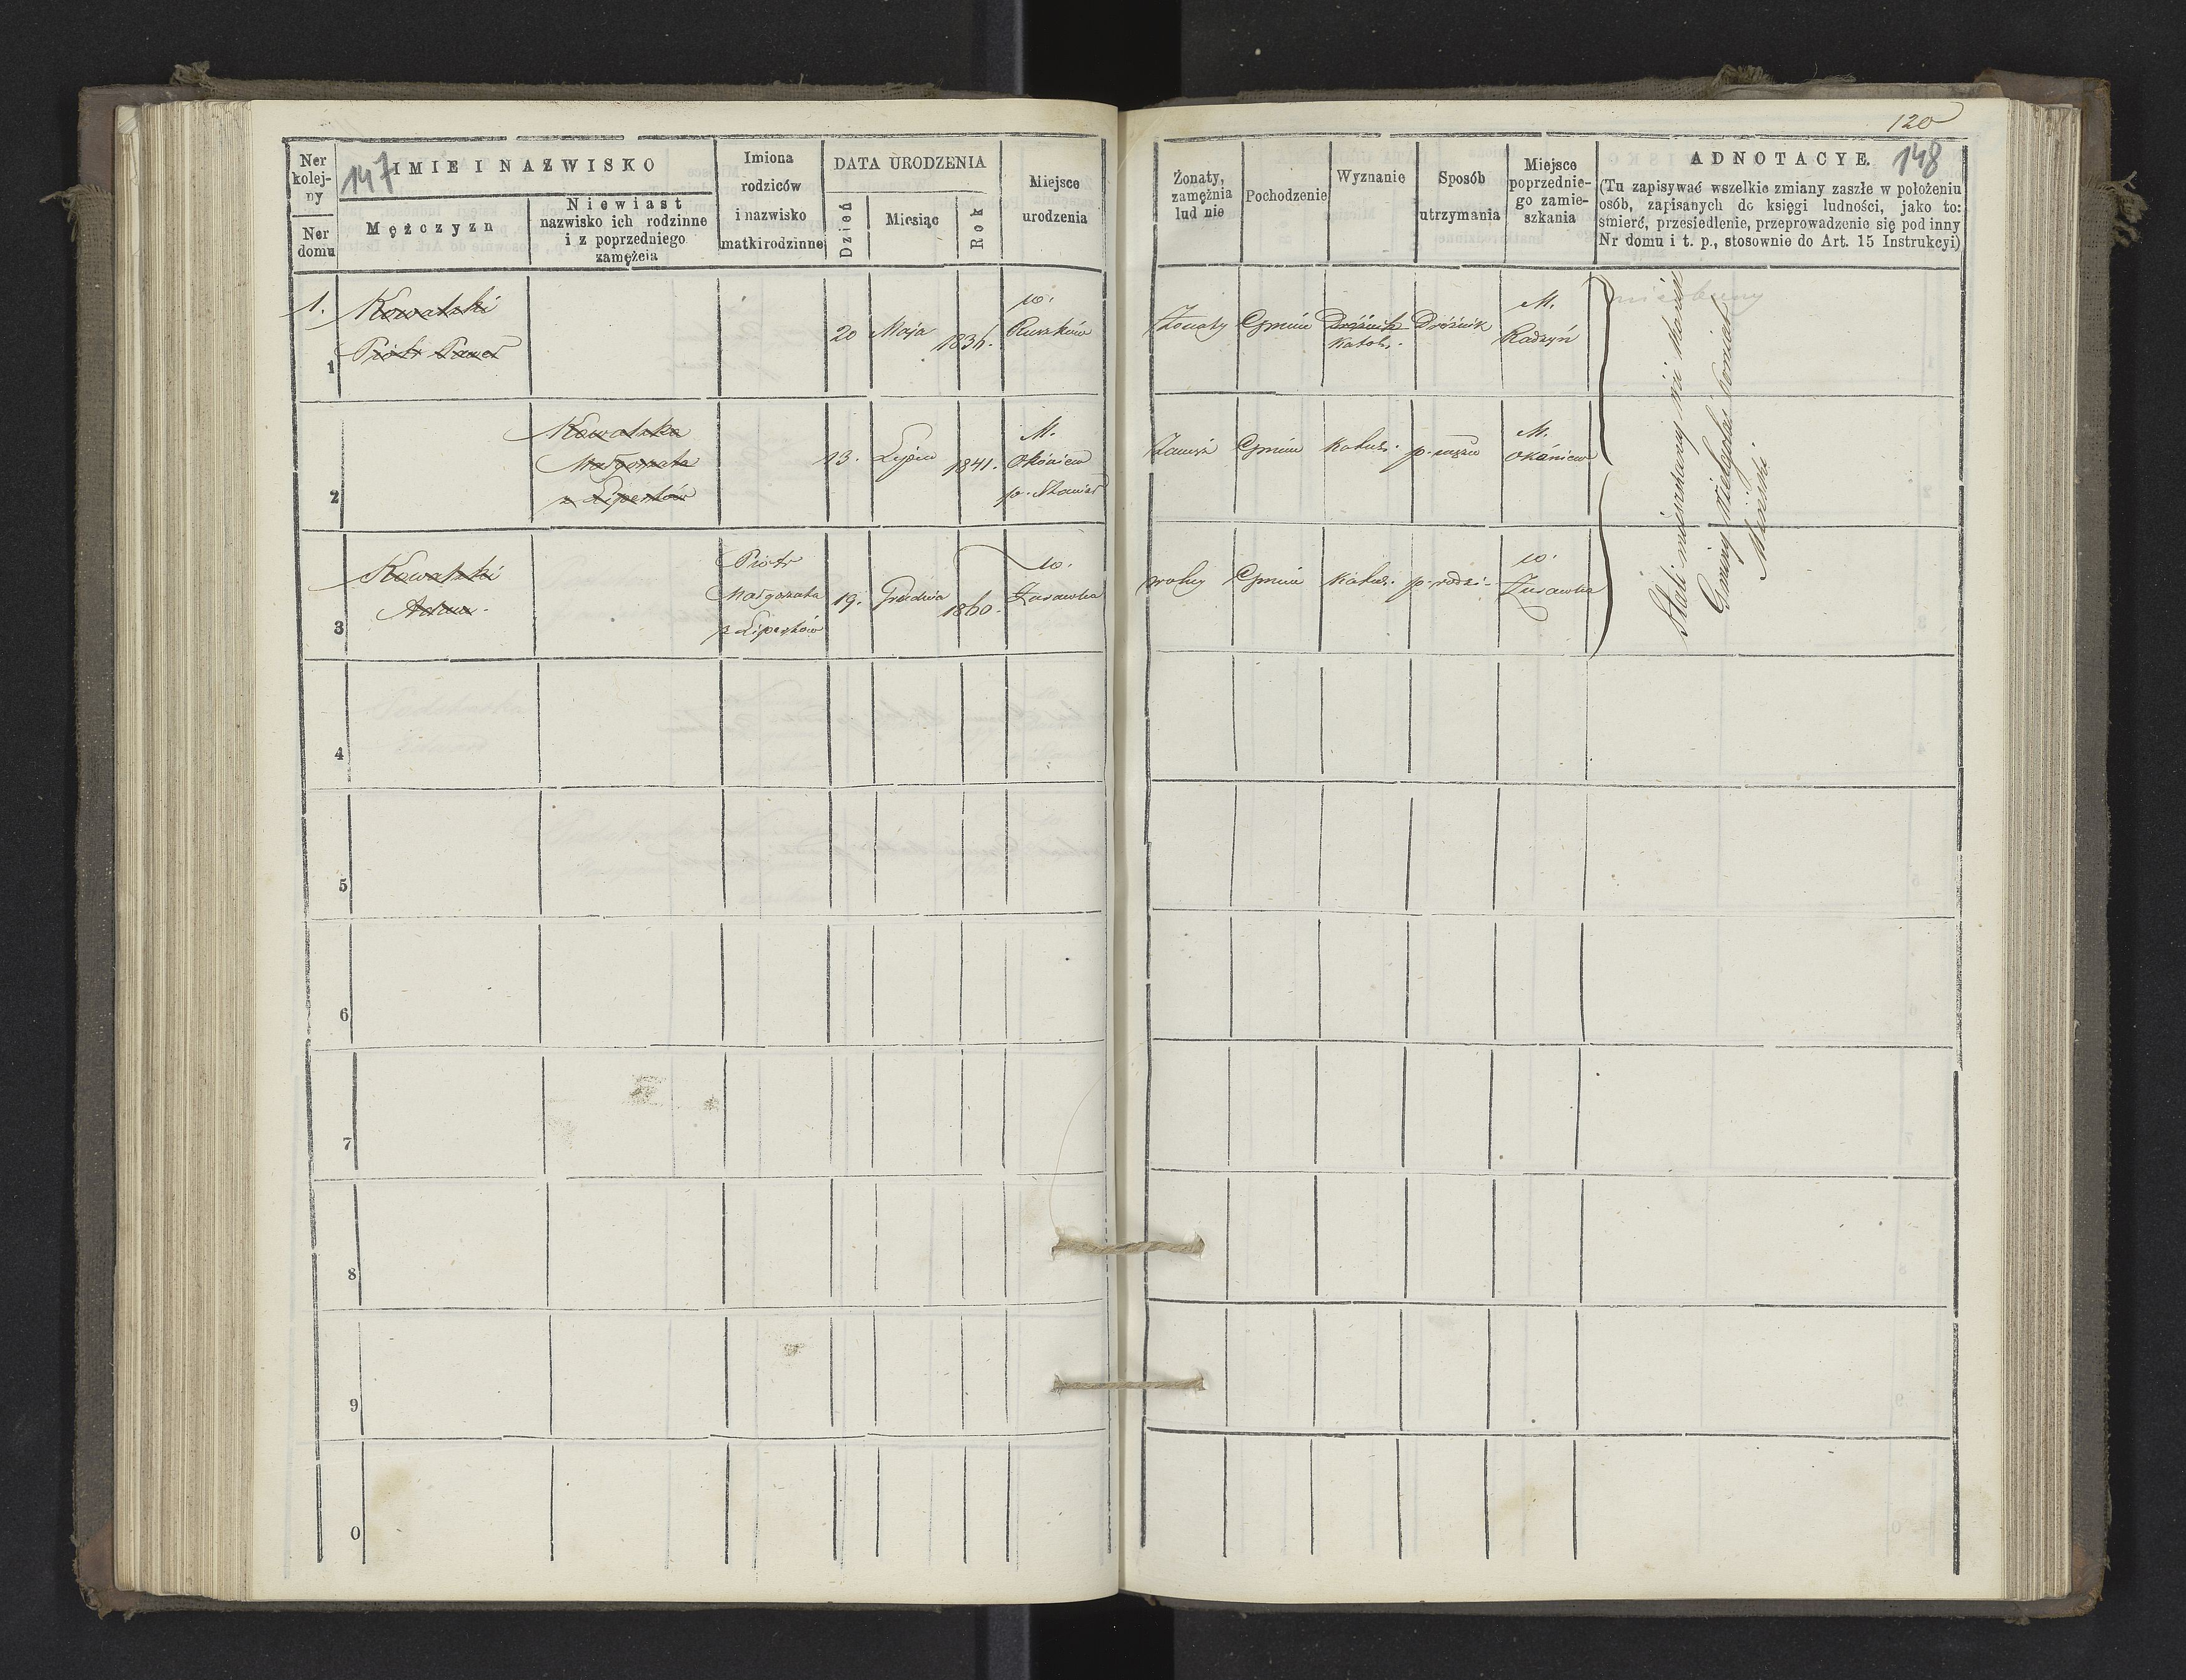 120
147
148
Ner
kolej-
ny
Ner
domu
IMIE I NAZWISKO
Mężczyzn
Niewiast
nazwisko ich rodzinne
i z poprzedniego
zamężcia
Imiona
rodziców
i nazwisko
matki rodzinne
DATA URODZENIA
Dzień
Miesiąc
Rok
Miejsce
urodzenia
Żonaty,
zamężnia
lud nie
Pochodzenie
Wyznanie
Sposób
utrzymania
Miejsce
poprzednie-
go zamie-
szkania
ADNOTACYE.
(Tu zapisywać wszelkie zmiany zaszłe w położeniu
osób, zapisanych do księgi ludności, jako to:
śmierć, przesiedlenie, przeprowadzenie się pod inny
Nr domu i t. p., stosownie do Art. 15 Instrukcyi)
1.
1
Kowalski
Piotr Paweł
20
Maja
w.
Ruszków
Żonaty
Gmin
Dróżnik
Katol.
Dróżnik
M.
Radzyń
2
Kowalska
Małgorzata
z Lipertów
13.
Lipca
1841.
M.
Okuniew
Gmin
Katol.
p. mężu
M.
Okuniew
3
Kowalski
Adam.
Piotr
Małgorzata
z Lipertów
19.
Grudnia
1860.
w.
Żurawka
wolny
Gmin
Katol.
p. rodzi.
w.
Żurawka
Stali mieszkańcy wsi
Gminy Wielgolas Powiat
Miński
4
5
6
7
8
9
0